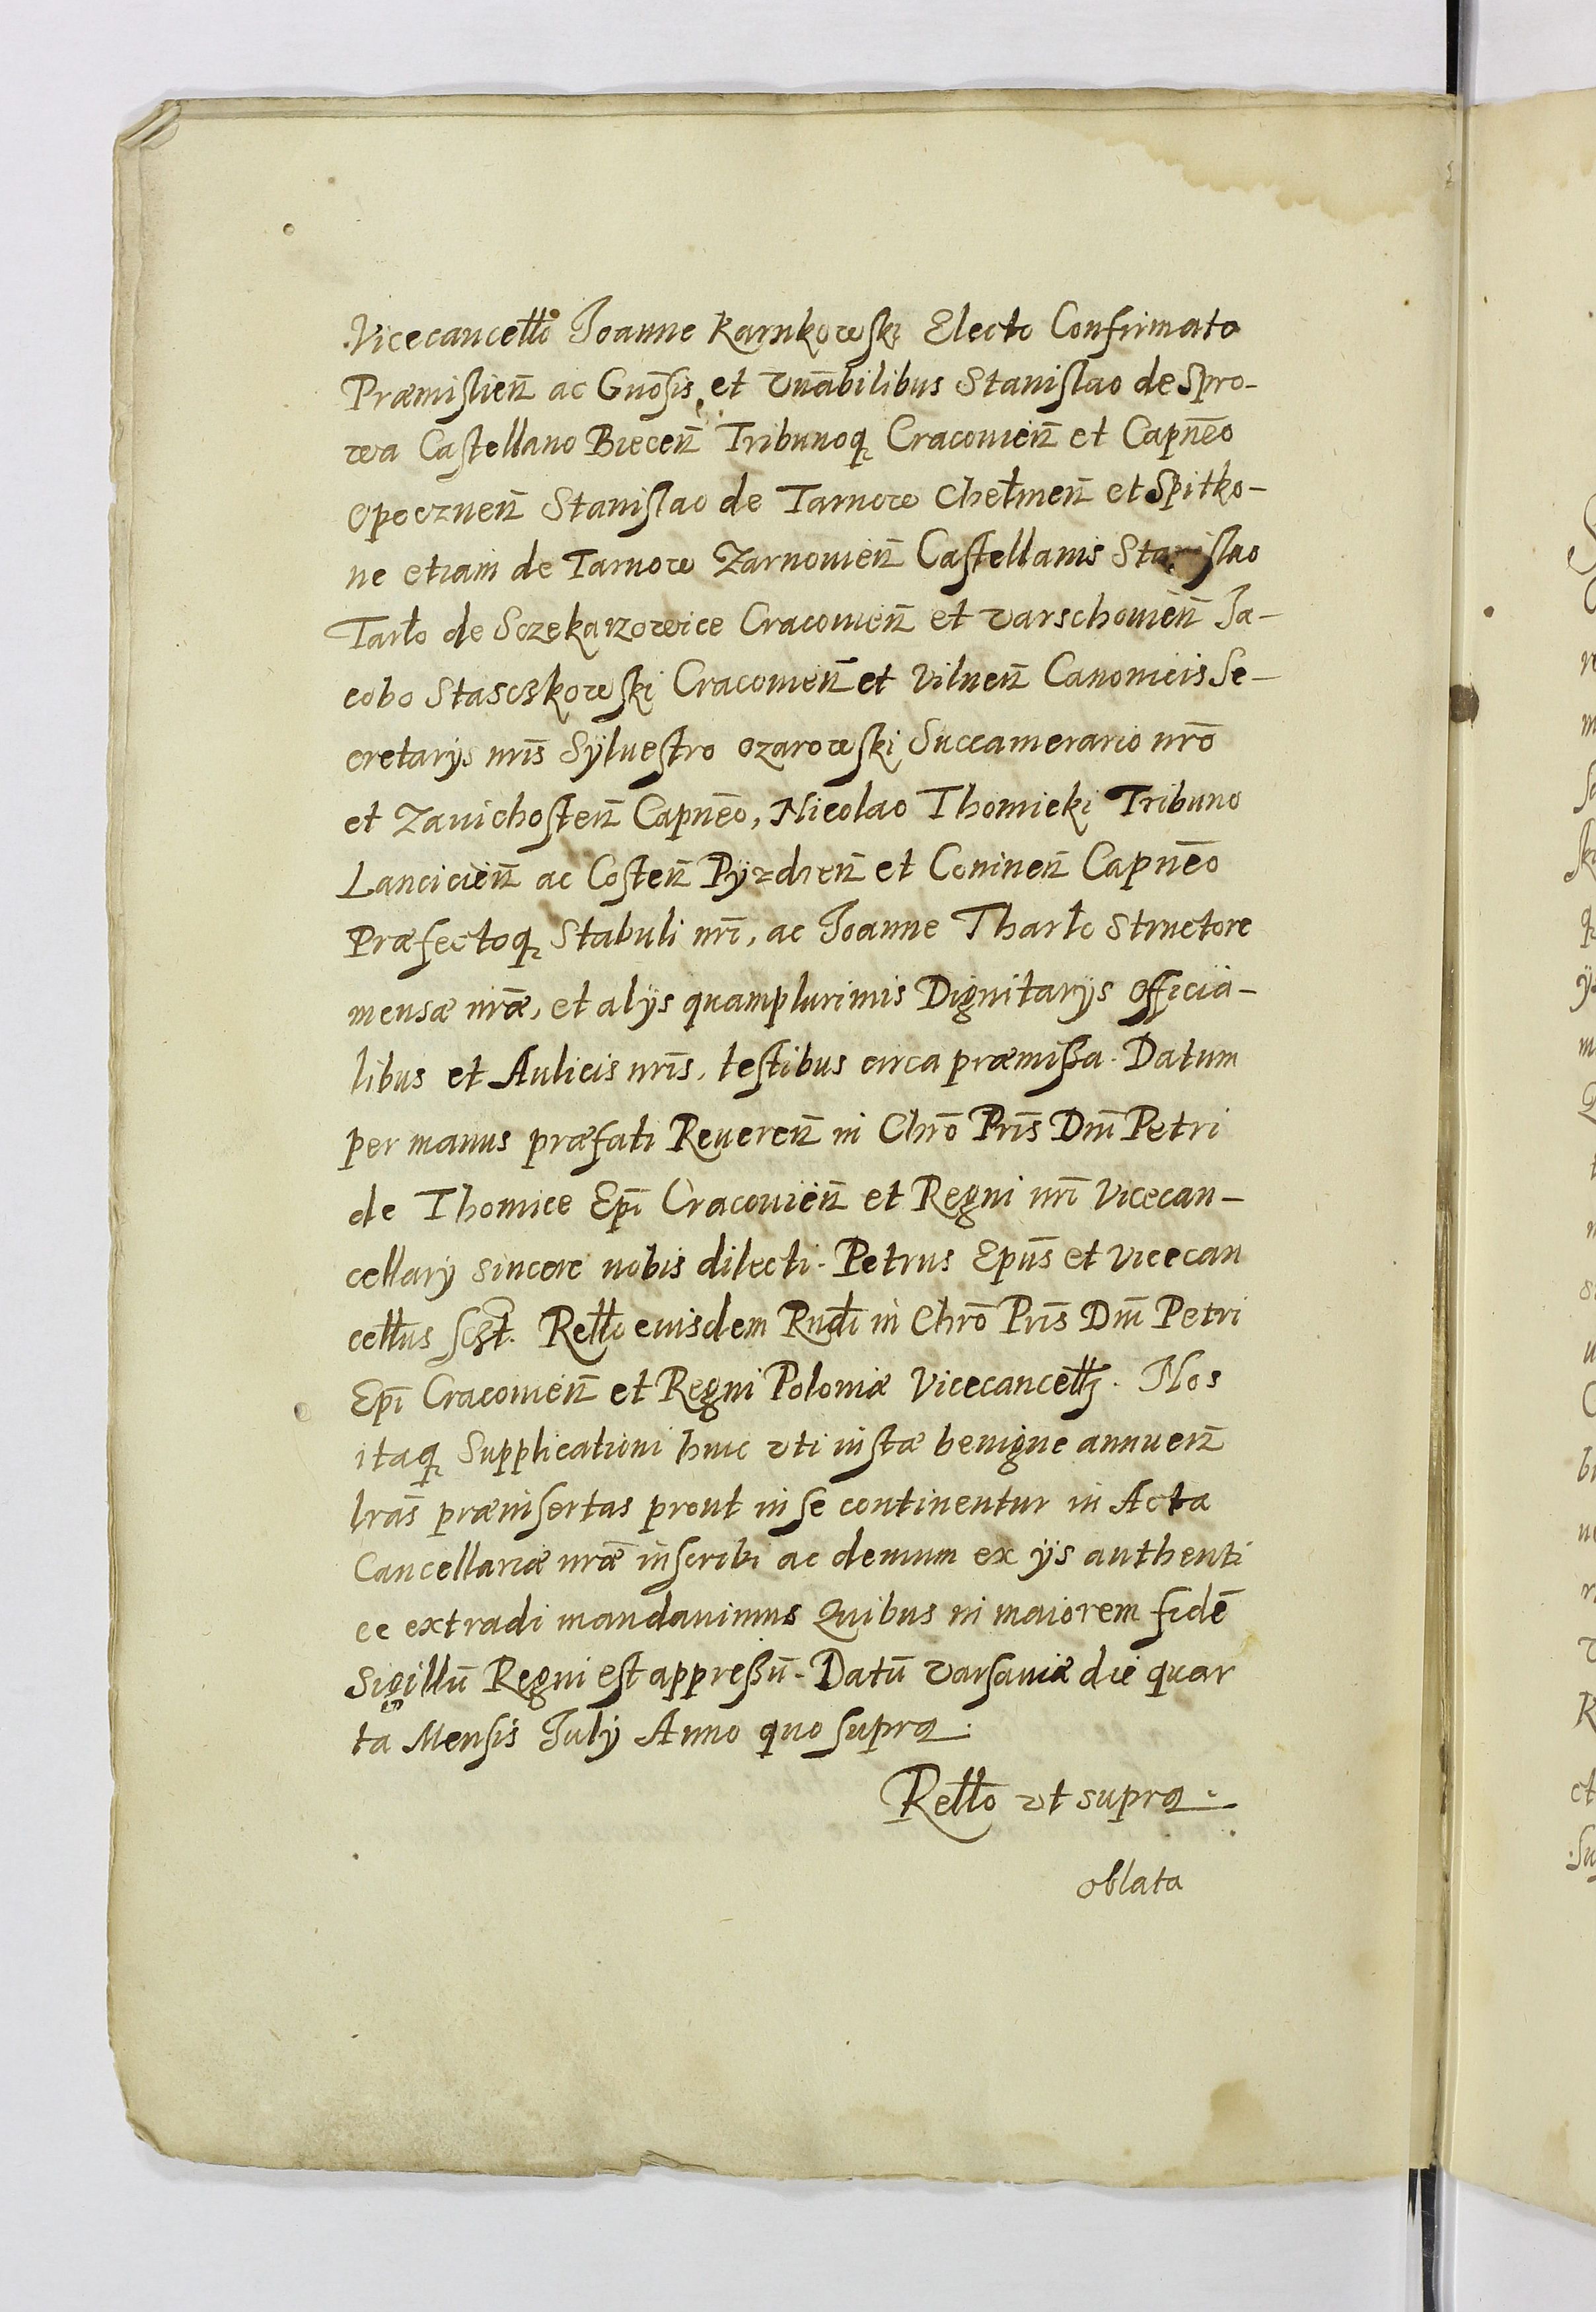 Vicecancełło Joanne Karnkowski Electo Confirmato
Præmislien̄ ac Gnōsis, et Vnābilibus Stanislao de Spro-
wa Castellano Biecen̄ Tribunoq Cracouien̄ et Capnēo
Opocznen̄ Stanislao de Tarnow Chełmen̄ et Spitko-
ne etiam de Tarnow Zarnouien̄ Castellanis Stanislao
Tarło de Sczekarzowice Cracouien̄ et Varschouien̄ Ja-
cobo Stascskowski Cracouien̄ et Vilnen̄ Canonicis Se-
cretarijs nrīs Sÿluestro Ozarowski Succamerario nrō
et Zauichosten̄ Capnēo, Nicolao Thomicki Tribuno
Lancicien̄ ac Costen̄ Pÿzdren̄ et Coninen̄ Capnēo
Præfectoq Stabuli nrī, ac Joanne Tharło Structore
mensæ nrǣ, et alijs quamplurimis Dignitarijs Officia-
libus et Aulicis nrīs, testibus circa præmissa. Datum
per manus præfati Reueren̄ in Chrō Prīs Dnī Petri
de Thomice Epī Cracouien̄ et Regni nrī Vicecan-
cellarij sincere nobis dilecti. Petrus Epūs et Vicecan
cełłus sszt. Rełło eiusdem Rndī in Chrō Prīs Dnī Petri
Epī Cracouien̄ et Regni Poloniæ Vicecancełłij. Nos
itaq Supplicationi huic vti iustæ benigne annuen̄
lrās præinsertas prout in se continentur in Acta
Cancellariæ nrǣ inscribi ac demum ex ijs authenti
ce extradi mandauimus Quibus in maiorem fidē
Sigillū Regni est appressū. Datū Varsauiæ die quar
ta Mensis Julij Anno quo supra.
Rełło vt supra.
oblata